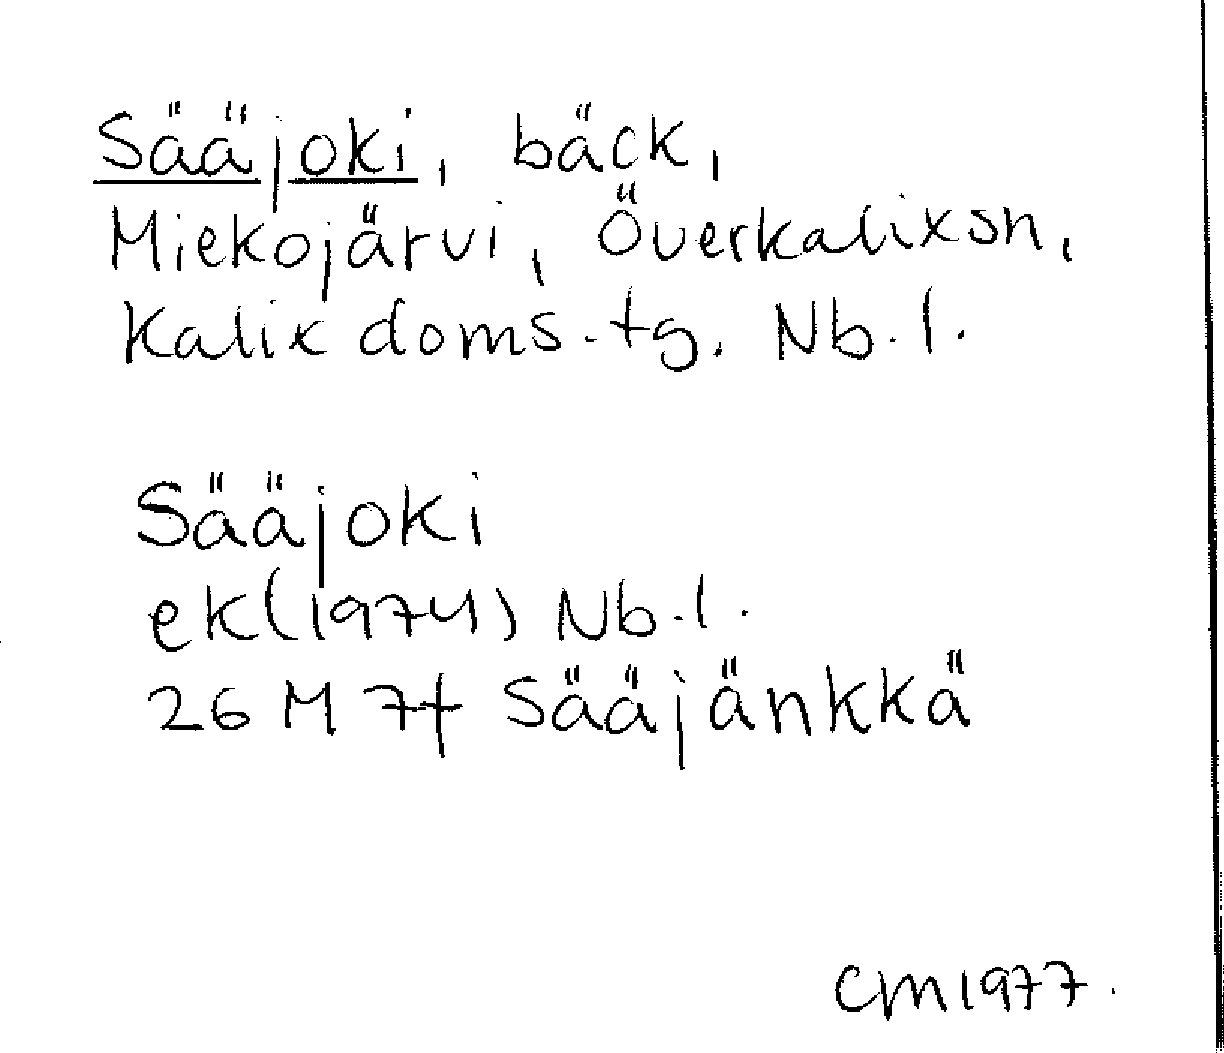 Sääjoki, bäck,
Miekojärvi, Överkalixsn,
Kalix doms.tg. Nb.l.
Sääjoki
ek(1974) Nb.l.
26 M 7f Sääjänkkä
CM1977.